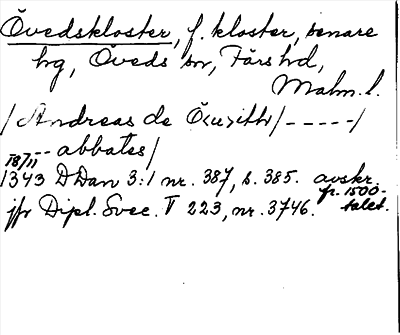 Övedskloster, f. kloster, senare
hg, Öveds sn, Färs hd,
Malm. l.
/Andreas de Ö<u>with/-----/
--- abbates/
18/11
1343 DDan 3:1 nr. 387, s. 385. avskr.
fr. 1500-
jfr Dipl. Svec. V 223, nr. 3746. talet.